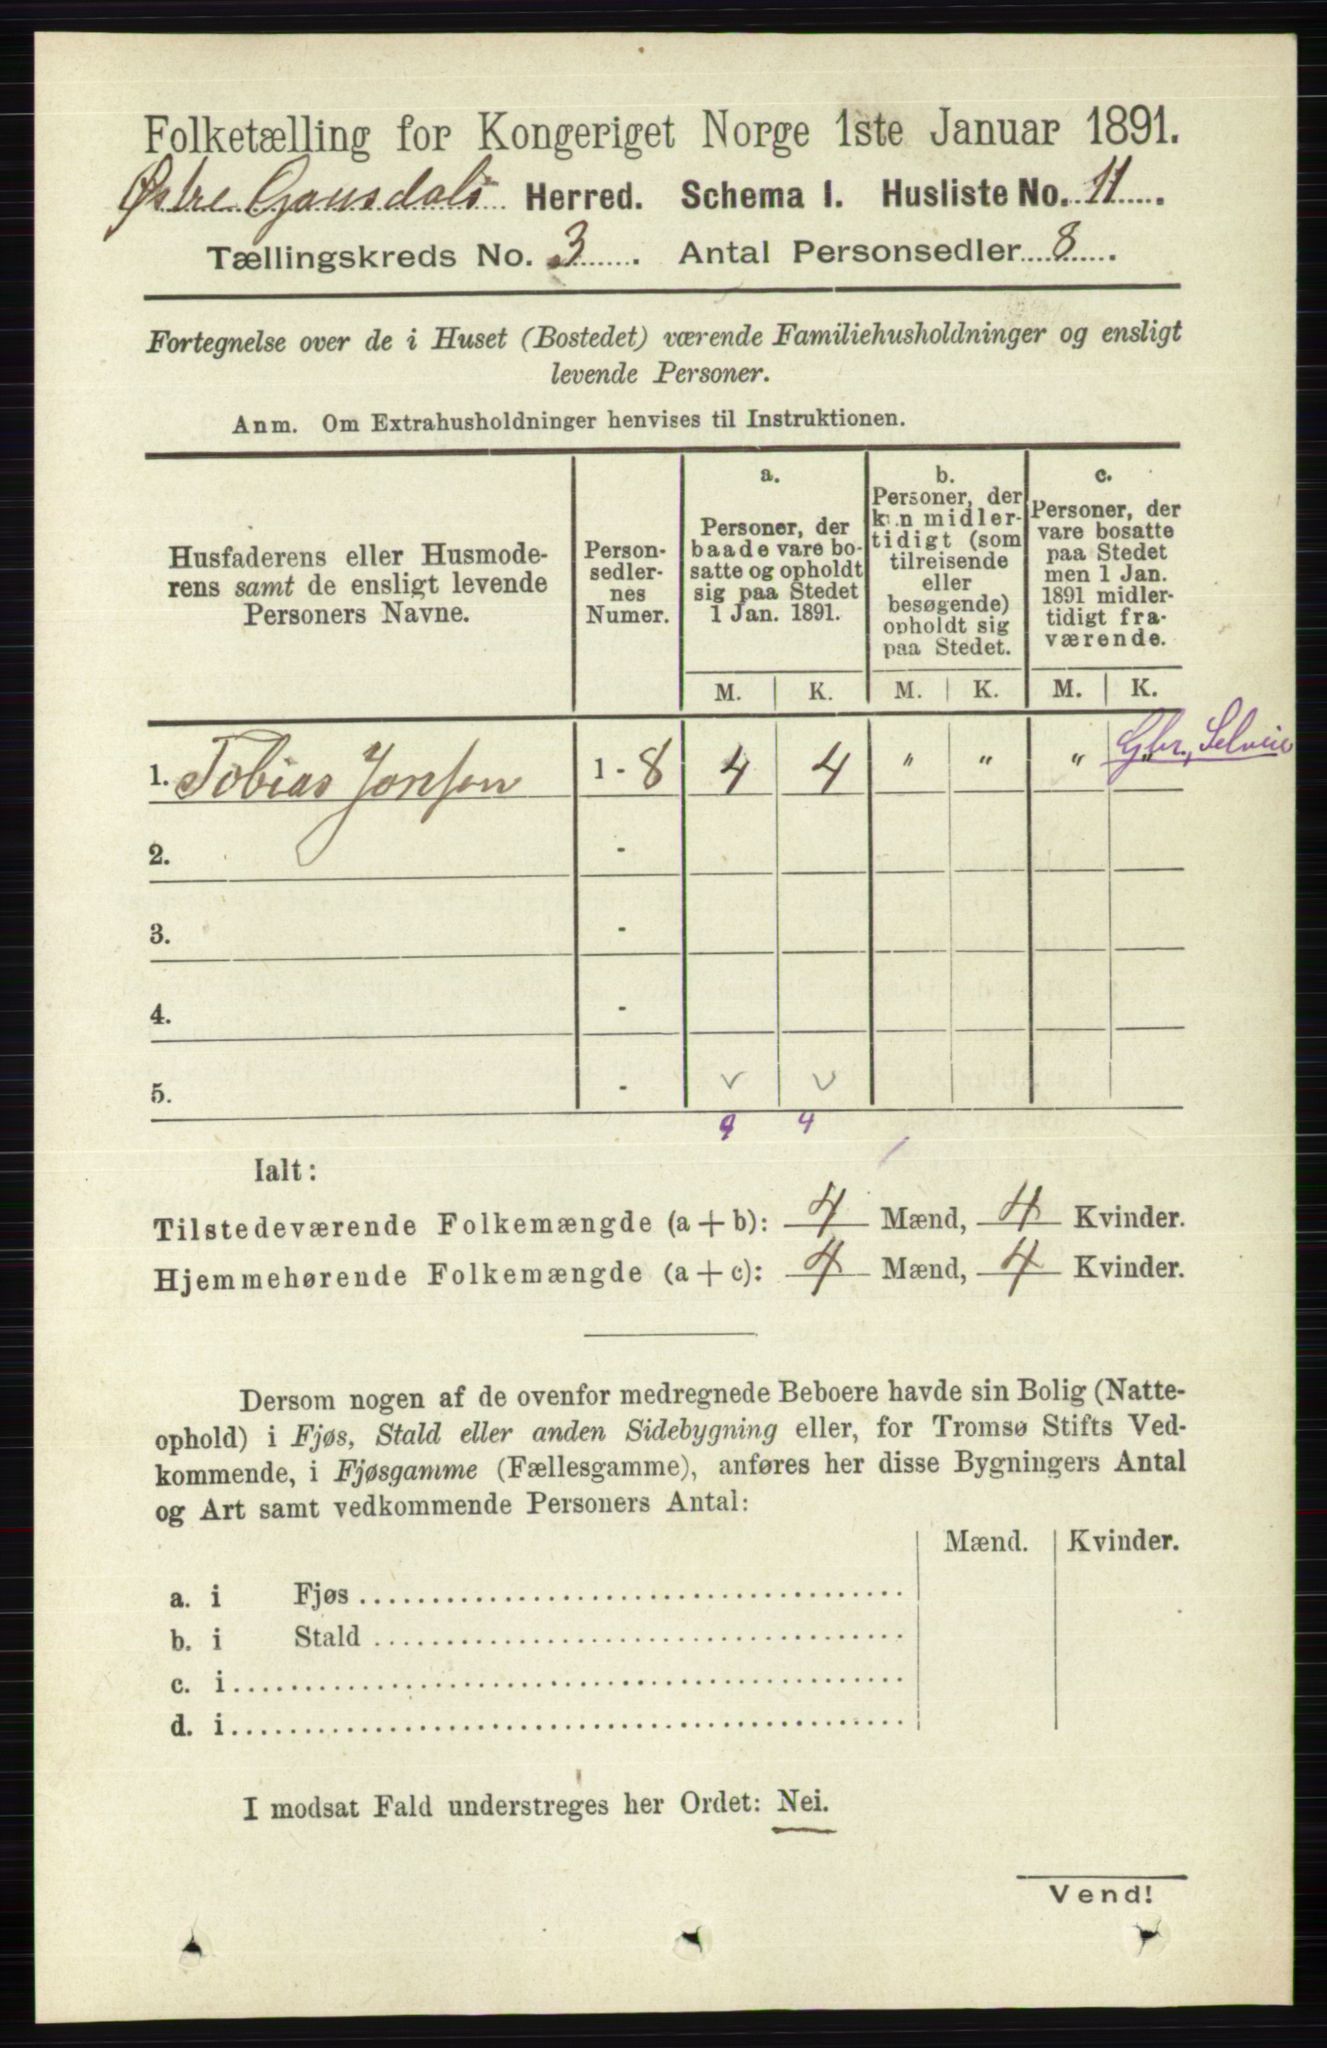 Folketælling for Kongeriget Norge 1ste Januar 1891.
Østre Gausdals Herred. Schema I. Husliste No. 11.
Tællingskreds No. 3. Antal Personsedler 8.
Fortegnelse over de i Huset (Bostedet) værende Familiehusholdninger og ensligt
levende Personer.
Anm. Om Extrahusholdninger henvises til Instruktionen.
Husfaderens eller Husmode-
rens samt de ensligt levende
Personers Navne.
Person-
sedler-
nes
Numer.
a.
Personer, der
baade vare bo-
satte og opholdt
sig paa Stedet
1 Jan. 1891.
b.
Personer, der
kun midler-
tidigt (som
tilreisende
eller
besøgende)
opholdt sig
paa Stedet.
c.
Personer, der
vare bosatte
paa Stedet
men 1 Jan.
1891 midler-
tidigt fra-
værende.
M. K. M. K. M. K.
1. Tobias Jonsen 1 - 8 4 4 " " " " Gbr., Selveier
2. -
3. -
4. -
5. -
4 4
Ialt:
Tilstedeværende Folkemængde (a + b): 4 Mænd, 4 Kvinder.
Hjemmehørende Folkemængde (a + c): 4 Mænd, 4 Kvinder.
Dersom nogen af de ovenfor medregnede Beboere havde sin Bolig (Natte-
ophold) i Fjøs, Stald eller anden Sidebygning eller, for Tromsø Stifts Ved-
kommende, i Fjøsgamme (Fællesgamme), anføres her disse Bygningers Antal
og Art samt vedkommende Personers Antal:
Mænd. Kvinder.
a. i Fjøs
b. i Stald
c. i
d. i
I modsat Fald understreges her Ordet: Nei.
Vend!